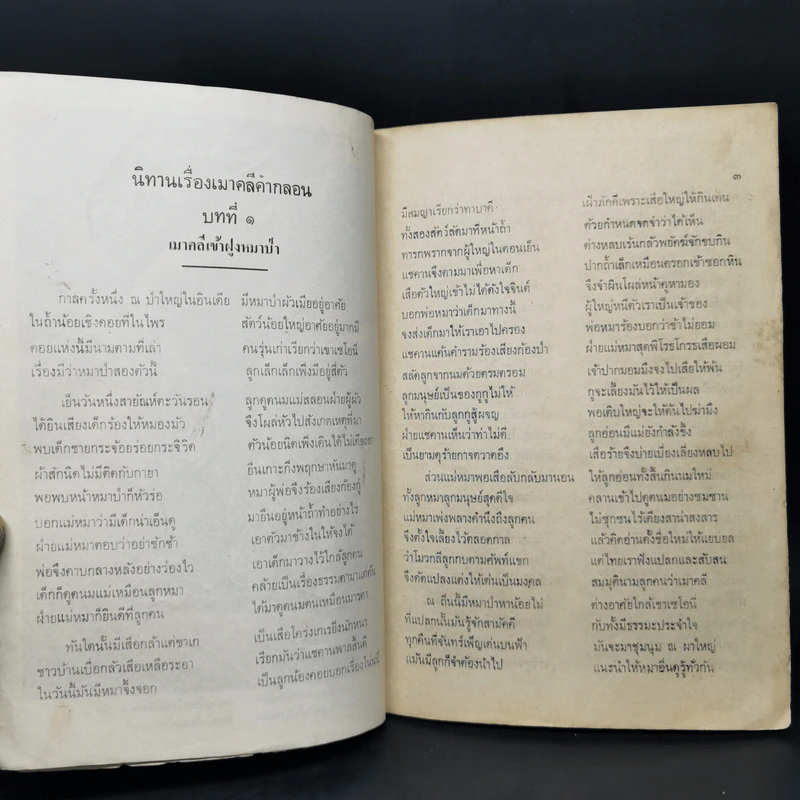 นิทานเรื่องเมาคลีคำกลอน
บทที่ ๑
เมาคลีเข้าฝูงหมาป่า
กาลครั้งหนึ่ง ณ ป่าใหญ่ในอินเดีย มีหมาป่าผัวเมียอยู่อาศัย
ในถ้ำน้อยเชิงดอยที่ในไพร สัตว์น้อยใหญ่อาศัยอยู่มากมี
ดอยแห่งนี้มีนามตามที่เล่า คนรุ่นเก่าเรียกว่าเขาเซโอนี
เรื่องมีว่าหมาป่าสองตัวนี้ ลูกเล็กเล็กเพิ่งมีอยู่สี่ตัว
เย็นวันหนึ่งสายัณห์ตะวันรอน ลูกดูดนมแม่สลอนฝ่ายผู้ผัว
ได้ยินเสียงเด็กร้องให้หมองมัว จึงโผล่หัวไปสังเกตเหตุที่มา
พบเด็กชายกระจ้อยร่อยกระจิริด ตัวน้อยนิดเพิ่งเดินได้ไม่เดียงสา
ผ้าสักนิดไม่มีติดกับกายา ยืนเกาะกิ่งพฤกษาหันมาดู
พอพบหน้าหมาป่าก็หัวร่อ หมาผู้พ่อจึงร้องเสียงก้องกู่
บอกแม่หมาว่ามีเด็กน่าเอ็นดู มายืนอยู่หน้าถ้ำทำอย่างไร
ฝ่ายแม่หมาตอบว่าอย่าชักช้า เอาตัวมาข้างในให้จงได้
พ่อจึงคาบกลางหลังอย่างว่องไว เอาเด็กมาวางไว้ใกล้ลูกตน
เด็กก็ดูดนมแม่เหมือนลูกหมา คล้ายเป็นเรื่องธรรมดามาแต่ต้น
ฝ่ายแม่หมาก็ยินดีที่ลูกคน ได้มาดูดนมตนเหมือนมารดา
ทันใดนั้นมีเสือกล้าแต่ขาเก เป็นเสือโคร่งเกเรยิ่งนักหนา
ชาวบ้านเบื่อกลัวเสือเหลือระอา เรียกมันว่าแชคานพาลสิ้นดี
ในวันนี้มันมีหมาจิ้งจอก เป็นลูกน้องคอยบอกเรื่อง
๓
มีสมญาเรียกว่าทาบาคี เฝ้าภักดีเพราะเสือใหญ่ให้กินเดน
ทั้งสองสัตว์ลัดมาที่หน้าถ้ำ ด้วยกำหนดจดจำว่าได้เห็น
ทารกพรากจากผู้ใหญ่ในตอนเย็น ต่างหลบเร้นกลัวพยัคฆ์จักขบกิน
แชคานจึงตามมาเพื่อหาเด็ก ปากถ้ำเล็กเหมือนตรอกเข้าซอกหิน
เสือตัวใหญ่เข้าไม่ได้ดังใจจินต์ จึงจำผินโผล่หน้าคูหามอง
บอกพ่อหมาว่าเด็กมาทางนี้ ผู้ใหญ่หนีตัวเราเป็นเจ้าของ
จงส่งเด็กมาให้เราเอาไปครอง พ่อหมาร้องบอกว่าข้าไม่ยอม
แชคานแค้นคำรามร้องเสียงก้องป่า ฝ่ายแม่หมาสุดพิโรธโกรธเสือผอม
สลัดลูกจากนมด้วยตรมตรอม เจ้าปากมอมมึงจงไปเสียให้พ้น
ลูกมนุษย์เป็นของกูกูไม่ให้ กูจะเลี้ยงมันไว้ให้เป็นผล
ให้หากินกับลูกกูสู้ผจญ พอเติบใหญ่จะให้ด้นไปฆ่ามึง
ฝ่ายแชคานเห็นว่าท่าไม่ดี ลูกอ่อนมีแม่ยังกำลังขึ้ง
เป็นยามดุร้ายกาจตวาดอึง เสือร้ายจึงบ่ายเบี่ยงเลี่ยงหลบไป
ส่วนแม่หมาพอเสือลับกลับมานอน ให้ลูกอ่อนทั้งสิ้นกินนมใหม่
ทั้งลูกหมาลูกมนุษย์สุดดีใจ คลานเข้าไปดูดนมอย่างชมชาน
แม่หมาเพ่งพลางคำนึงถึงลูกคน ไม่ซุกซนไร้เดียงสาน่าสงสาร
จึงตั้งใจเลี้ยงไว้ตลอดกาล แล้วคิดอ่านตั้งชื่อใหม่ให้แยบยล
ว่าโมวกลีลูกกบตามศัพท์แขก แต่ไทยเราฟังแปลกและสับสน
จึงดัดแปลงแต่งให้เด่นเป็นมงคล สมมุตินามลูกคนว่าเมาคลี
ณ ถิ่นนี้มีหมาป่าหาน้อยไม่ ต่างอาศัยใกล้เขาเซโอนี
ที่แปลกนั้นมันรู้จักสามัคคี กับทั้งมีธรรมะประจำใจ
ทุกคืนที่จันทร์เพ็ญเด่นบนฟ้า มันจะมาชุมนุม ณ ผาใหญ่
แม้นมีลูกก็จำต้องนำไป แนะนำให้หมาอื่นดูรู้ทั่วกัน